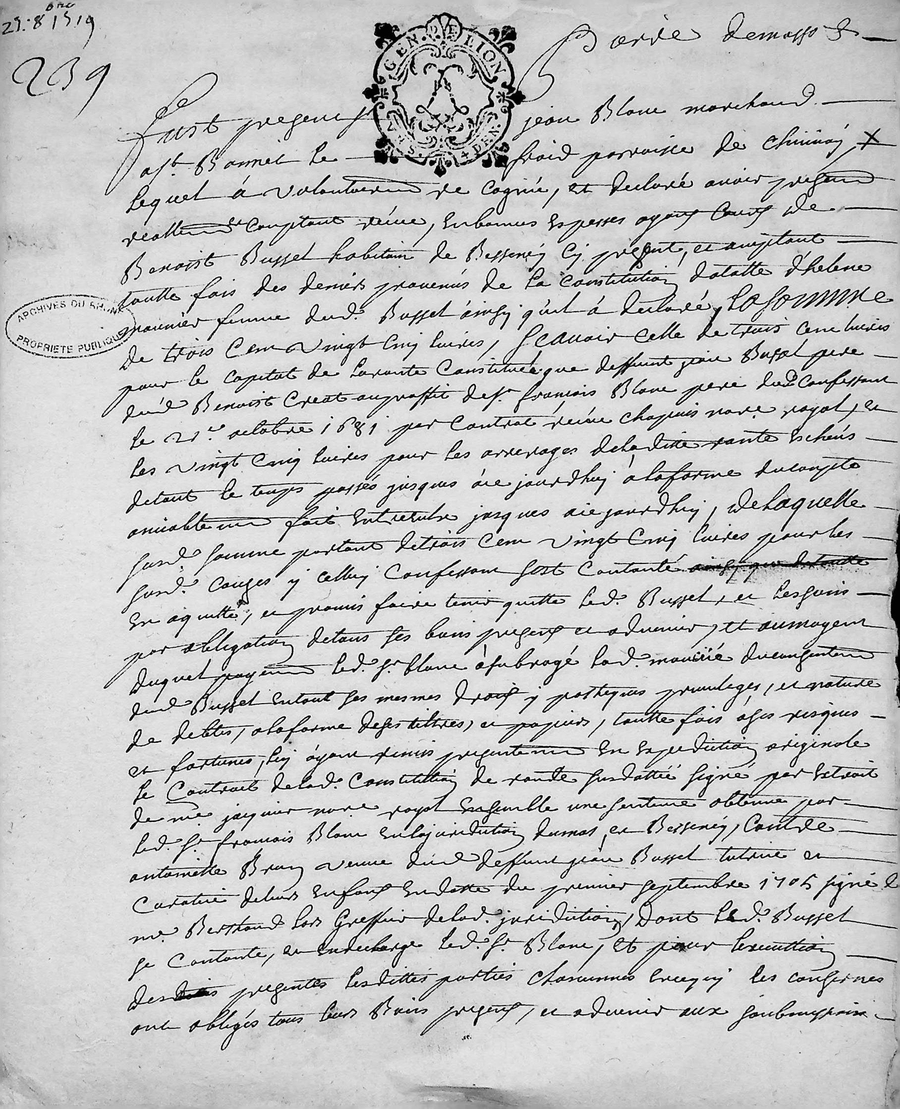 29. 8bre 1519
239
GEN. DE LION
ARCHIVES DU RHONE
PROPRIETE PUBLIQUE
fust present jean Blanc marchand
a St. Bonnet le froid parroisse de
Lequel à volontairem reconneu, et declaré avoir presen
reallem et comptant receu, en bonnes espesses ayans cours de
Benoist Busset habitan de Bessenéy cy present, et aceptant
toutte fois des deniers provenus de la constitution dotalle d'helene
mounier femme dud. Busset ainsy qu'il à declaré, La somme
de trois cem vingt cinq livres, scavoir celle de trois cem livres
pour le capital de la rante constituée que deffunt jean Busset pere
dud. Benoist crea au proffit de Sr. francois Blanc pere dud. confessant
le 21me octobre 1681 par contrat receu chapuis nore royal, et
les vingt cinq livres pour les arrerages de laditte rante escheus
detout le temps passé jusques à ce jourdhuy a la forme du compte
amiablem fait entre eux jusques a ce jourdhuy, de laquelle
susd. somme portant de trois cem vingt cinq livres pour les
susd. causes y celluy confessant s'est contanté
en aquitte, et promis faire tenir quitte led. Busset, et les siens
par obligation de tous ses biens presens et advenir, et au moyen
duquel payem led. Sr. blanc à subrogé lad. mounier du consentem
dud. Busset en tous ses mesmes droits ypotheques privileges, et nature
de debtes, a la forme de ses tiltres, et papiers, toutte fois à ses risques
et fortunes, luy ayant remis presentem en expedition originale
le Contrat de lad. constitution de rante susdattée signé par extrait
de me. jaquier nore royal ensemble une sentence obtenue par
led. Sr francois Blanc en la juridition dumas, et Bessenéy, contre
antoinette Brun veuve dud. deffunt jean Busset tutrice et
curatrice de leurs enfans en datte du premier septembre 1705 signé
me. Bertrand lors Greffier de lad. juridition, dont led. Busset
se contante, et en descharge led. Sr Blanc, et pour l'execution
des presentes lesdittes parties chacunnes en ce qui les concernes
ont obligés tous leurs Biens presens, et advenir aux